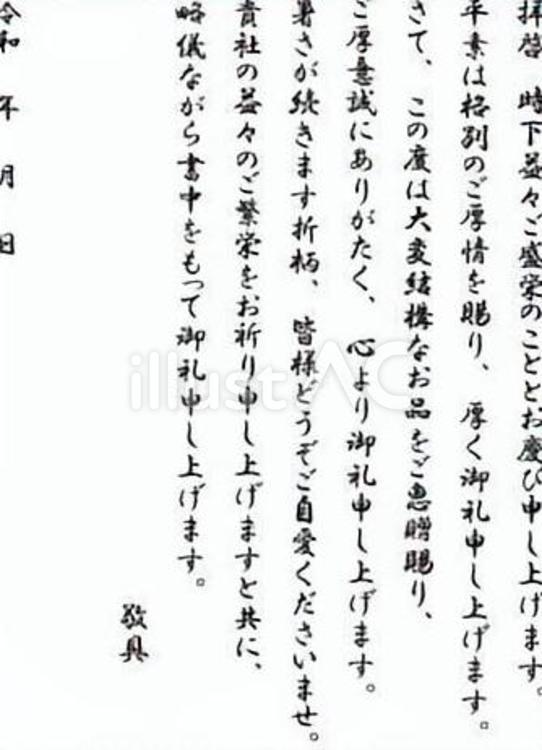 拝啓　時下益々ご盛栄のこととお慶び申し上げます。
平素は格別のご厚情を賜り、厚く御礼申し上げます。
さて、この度は大変結構なお品をご恵贈賜り、
ご厚意誠にありがたく、心より御礼申し上げます。
暑さが続きます折柄、皆様どうぞご自愛くださいませ。
貴社の益々のご繁栄をお祈り申し上げますと共に、
略儀ながら書中をもって御礼申し上げます。
敬具
令和　年　月　日
illustAC